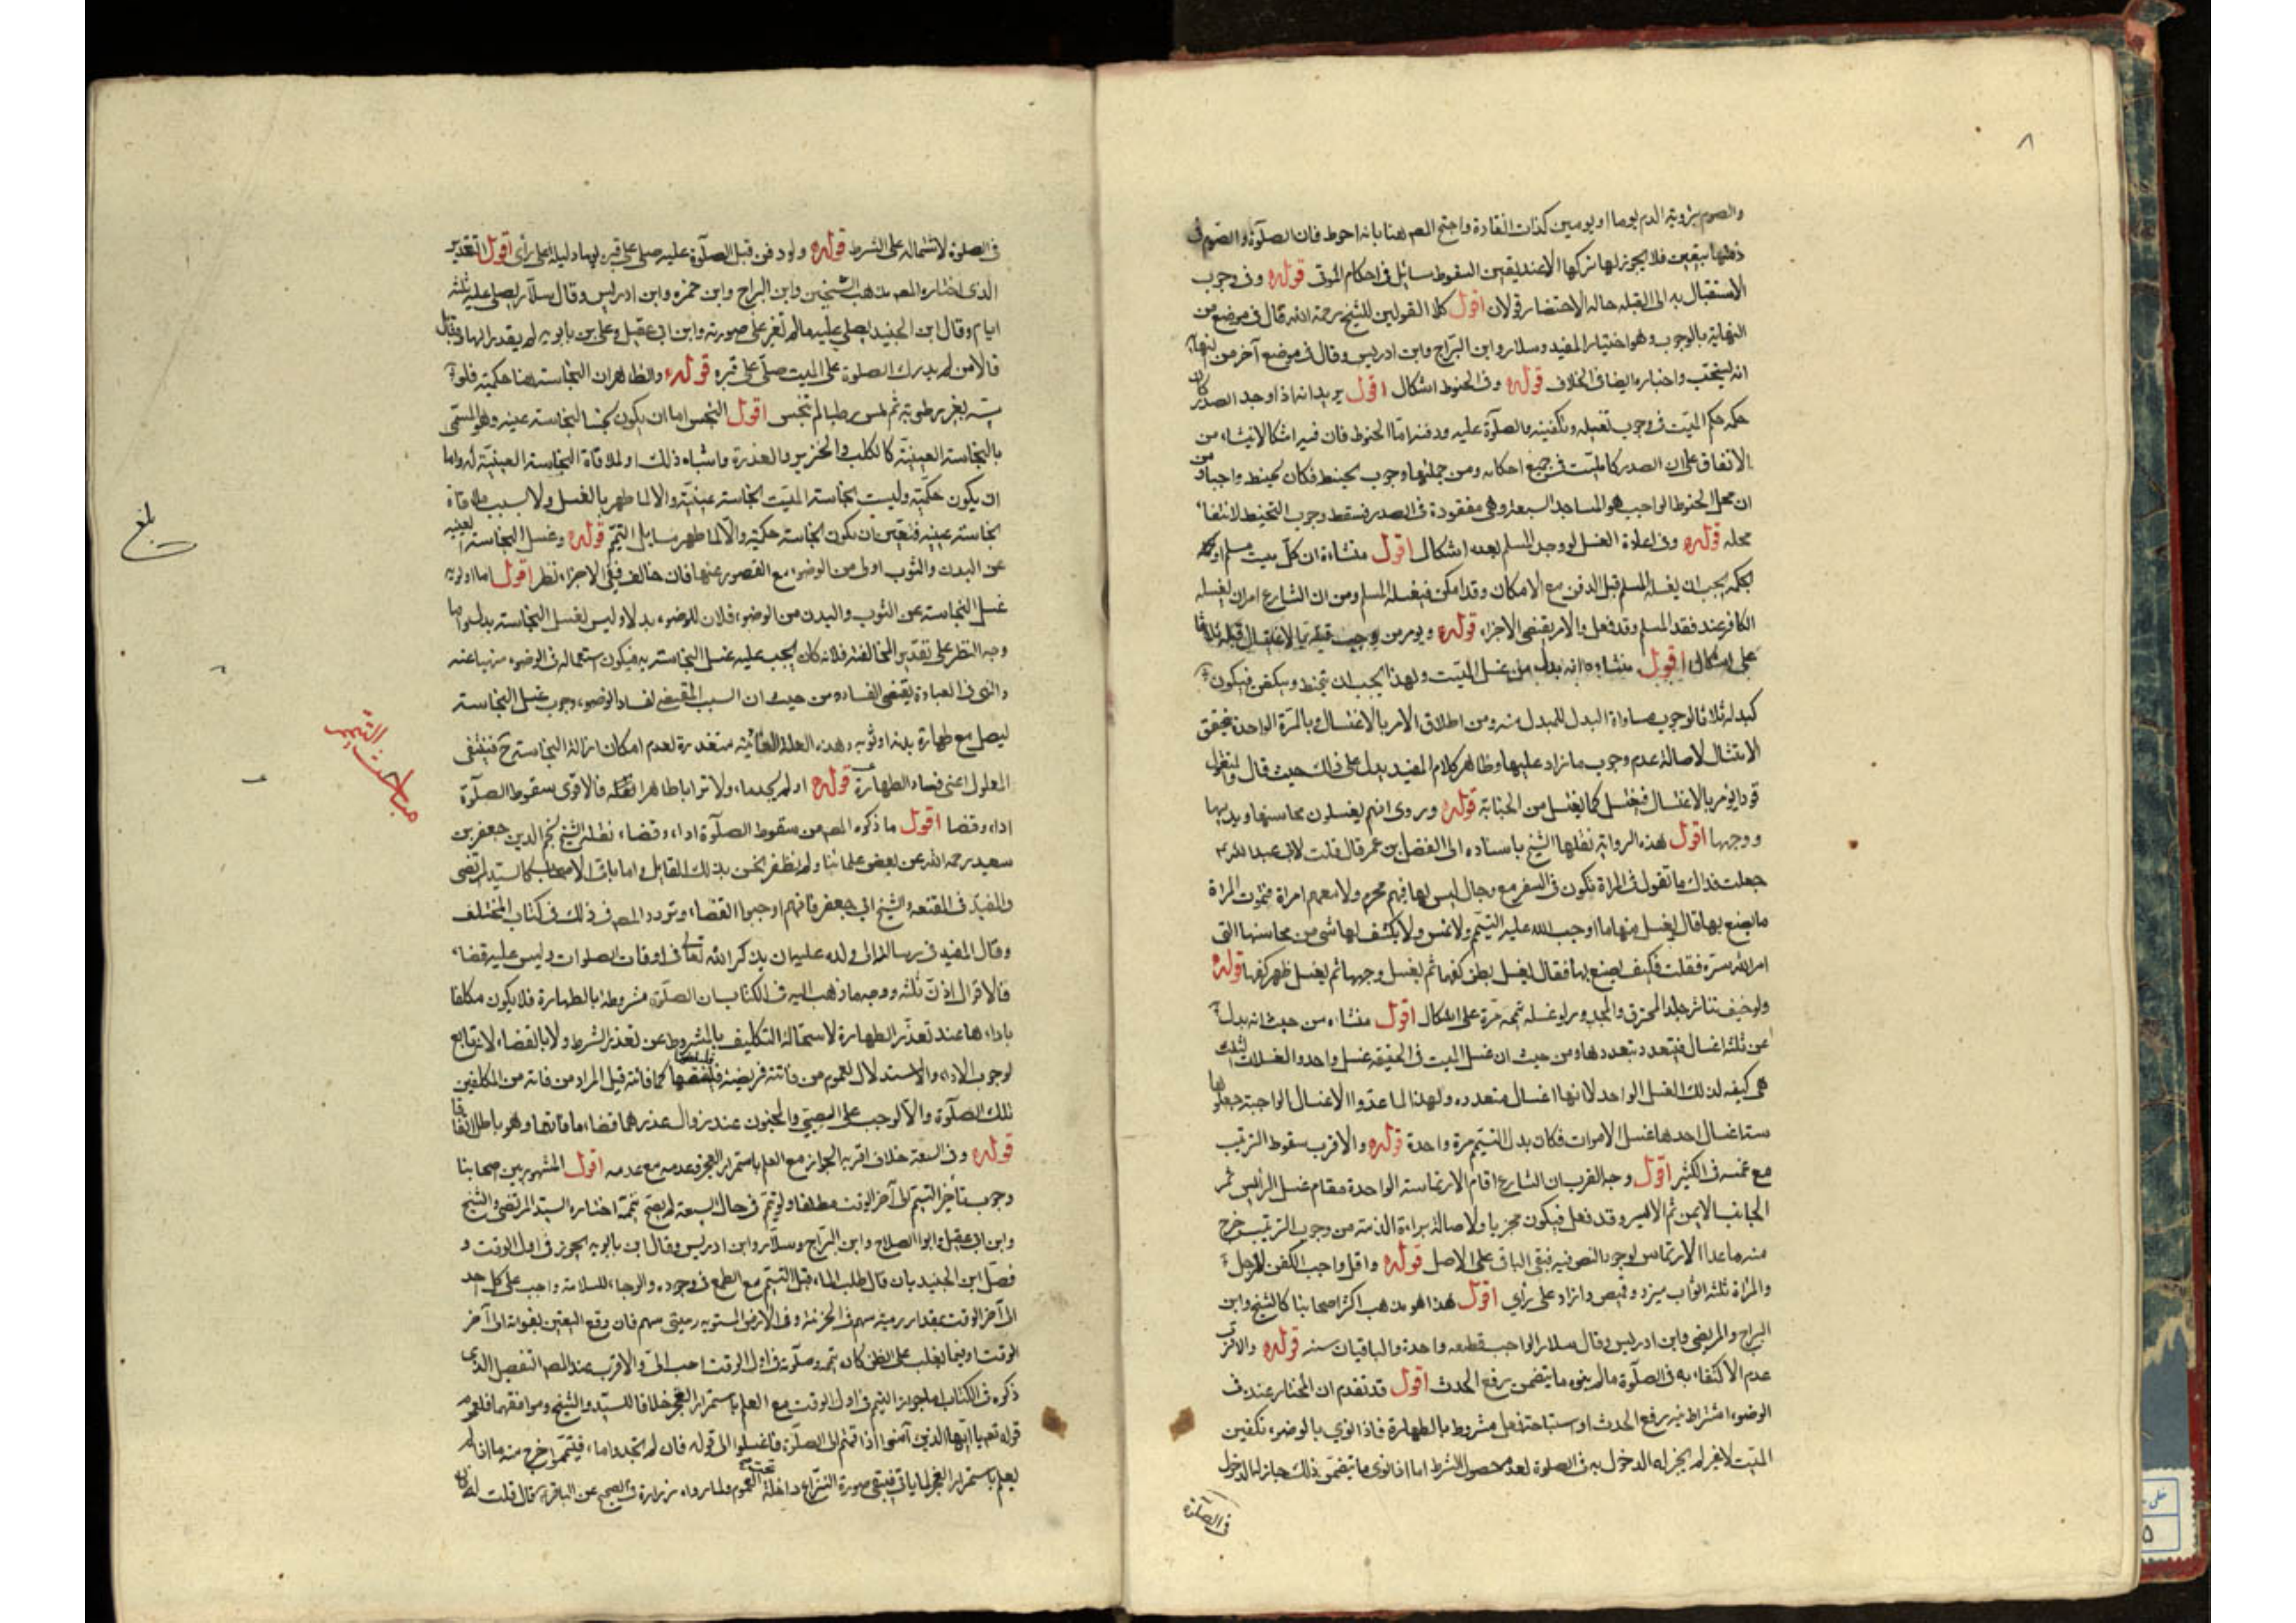 ٨
والصوم برؤية الدم يوما او يومين كذات العادة واحتج المص هنا بانه احوط فان الصلوة والصوم في
ذمتها بيقين فلا يجوز لها تركها الا عند يقين السقوط مسائل في احكام الموتى قوله وفي وجوب
الاستقبال به الى القبلة حالة الاحتضار قولان اقول كلا القولين للشيخ رحمه الله قال في موضع من
النهاية بالوجوب وهو اختيار المفيد وسلار وابن البراج وابن ادريس وقال في موضع آخر من النهاية
انه يستحب واختاره ايضا في الخلاف قوله وفي الحنوط اشكال اقول يريد انه اذا وجد الصدر كان
حكمه حكم الميت في وجوب تغسيله وتكفينه والصلوة عليه ودفنه اما الحنوط فان فيه اشكالا ينشاء من
الاتفاق على ان الصدر كالميت في جميع احكامه ومن جملتها وجوب تحنيطه فكان تحنيطه واجبا ومن
ان محل الحنوط الواجب هو المساجد السبعة وهي مفقودة في الصدر فسقط وجوب التحنيط لانتفاء
محله قوله وفي اعادة الغسل لو وجد المسلم بعده اشكال اقول منشاءه ان كل ميت مسلم او
بحكمه يجب ان يغسله المسلم قبل الدفن مع الامكان وقد امكن فيغسله المسلم ومن ان الشارع امر ان يغسله
الكافر عند فقد المسلم وقد فعل والامر يقتضي الاجزاء قوله ويؤمر من وجب قتله بالاغتسال قبله ثلاثا
على اشكال اقول منشاءه انه بدل من غسل الميت ولهذا يجب ان يحنط ويكفن فيكون
كمبدله ثلاثا لوجوب مساواة البدل للمبدل منه ومن اطلاق الامر بالاغتسال وبالمرة الواحدة يتحقق
الامتثال لاصالة عدم وجوب ما زاد عليها وظاهر كلام المفيد يدل على ذلك حيث قال والمقتول
قودا يؤمر بالاغتسال فيغتسل كما يغتسل من الجنابة قوله وروي انهم يغسلون محاسنها يديها
ووجهها اقول هذه الرواية نقلها الشيخ باسناده الى المفضل بن عمر قال قلت لابي عبد الله ع
جعلت فداك ما تقول في المراة تكون في السفر مع رجال ليس لها فيهم محرم ولا معهم امراة فتموت المراة
ما يصنع بها قال يغسل منها ما اوجب الله عليه التيمم ولا تمس ولا يكشف لها شئ من محاسنها التي
امر الله بستره فقلت فكيف يصنع بها فقال يغسل بطن كفيها ثم يغسل وجهها ثم يغسل ظهر كفيها قوله
ولو خيف تناثر جلد المحترق والمجدور لو غسله يممه مرة على اشكال اقول منشاءه من حيث انه بدل
عن ثلثة اغسال فيتعدد بتعددها ومن حيث ان غسل الميت في الحقيقة غسل واحد والغسلات الثلث
هي كيفية لذلك الغسل الواحد لا انها اغسال متعددة ولهذا لما عدوا الاغسال الواجبة جعلوها
ستة اغسال احدها غسل الاموات فكان بدله التيمم مرة واحدة قوله والاقرب سقوط الترتيب
مع غمسه في الكثير اقول وجه القرب ان الشارع اقام الارتماسة الواحدة مقام غسل الراس ثم
الجانب الايمن ثم الايسر وقد فعل فيكون مجزيا ولاصالة براءة الذمة من وجوب الترتيب خرج
منه ما عدا الارتماس لوجود النص فيه فبقي الباقي على الاصل قوله واقل واجب الكفن للرجل
والمراة ثلثة اثواب ميزر وقميص وازار على رأي اقول هذا هو مذهب اكثر اصحابنا كالشيخ وابن
البراج والمرتضى وابن ادريس وقال سلار الواجب قطعة واحدة والباقيات سنة قوله والاقرب
عدم الاكتفاء به في الصلوة ما لم ينو ما يتضمن رفع الحدث اقول قد تقدم ان المختار عنده في
الوضوء اشتراط نية رفع الحدث او استباحة فعل مشروط بالطهارة فاذا نوى بالوضوء تكفين
الميت لا غير لم يجز له الدخول به في الصلوة لعدم حصول الشرط اما اذا نوى ما يتضمن ذلك جاز له الدخول
في الصلوة
في الصلوة لاشتماله على الشرط قوله ولو دفن قبل الصلوة عليه صلي على قبره يوما وليلة على رأي اقول التقدير
الذي اختاره المص مذهب الشيخين وابن البراج وابن حمزة وابن ادريس وقال سلار يصلى عليه ثلثة
ايام وقال ابن الجنيد يصلى عليه ما لم تغير على صورته وابن ابي عقيل وعلي بن بابويه لم يقدرا لها وقتا بل
قالا من لم يدرك الصلوة على الميت صلى على قبره قوله والظاهر ان النجاسة هنا حكمية فلو
مسه بغير رطوبة ثم لمس رطبا لم ينجس اقول النجس اما ان يكون نجسا لنجاسة عينه وهو المسمى
بالنجاسة العينية كالكلب والخنزير والعذرة واشباه ذلك او لملاقاة النجاسة العينية له واما
ان يكون حكمية وليست نجاسة الميت نجاسة عينية والا لما طهر بالغسل ولا بسبب ملاقاة
نجاسة عينية فتعين ان تكون نجاسته حكمية والا لما طهر مسايل التيمم قوله وغسل النجاسة العينية
عن البدن والثوب اولى من الوضوء مع القصور عنهما فان خالف ففي الاجزاء نظر اقول اما اولوية
غسل النجاسة عن الثوب والبدن من الوضوء فلان للوضوء بدلا وليس لغسل النجاسة بدل واما
وجه النظر على تقدير المخالفة فلانه كان يجب عليه غسل النجاسة به فيكون استعماله في الوضوء منهيا عنه
والنهي في العبادة يقتضي الفساد ومن حيث ان السبب المقتضي لفساد الوضوء وجوب غسل النجاسة
ليصلي مع طهارة بدنه او ثوبه وهذه العلة الغائية متعذرة لعدم امكان ازالة النجاسة ح فينتفي
المعلول اعني فساد الطهارة قوله او لم يجد ماء ولا ترابا طاهرا فالاقوى سقوط الصلوة
اداء وقضاء اقول ما ذكره المص من سقوط الصلوة اداء وقضاء نقله الشيخ نجم الدين جعفر بن
سعيد رحمه الله عن بعض علمائنا ولم نظفر نحن بذلك القايل واما باقي الاصحاب كالسيد المرتضى
والمفيد في المقنعة والشيخ ابي جعفر فانهم اوجبوا القضاء وتردد المص في ذلك في كتاب المختلف
وقال المفيد في رسالته الى ولده عليه ان يذكر الله تعالى في اوقات الصلوات وليس عليه قضاء
فالاقوال اذن ثلثة ووجه ما ذهب اليه في الكتاب ان الصلوة مشروطة بالطهارة فلا يكون مكلفا
باداءها عند تعذر الطهارة لاستحالة التكليف بالمشروط عند تعذر الشرط ولا بالقضاء لانه تابع
لوجوب الاداء والاستدلال بعموم من فاتته فريضة فليقضها كما فاتته قيل المراد من فاته من المكلفين
تلك الصلوة والا لوجب على الصبي والمجنون عند زوال عذرهما قضاء ما فاتهما وهو باطل اتفاقا
قوله وفي السعة خلاف اقربه الجواز مع العلم باستمرار العجز وعدمه مع عدمه اقول المشهور بين اصحابنا
وجوب تأخير التيمم الى آخر الوقت مطلقا ولو تيمم في حال السعة لم يصح تيممه اختاره السيد المرتضى والشيخ
وابن ابي عقيل وابو الصلاح وابن البراج وسلار وابن ادريس وقال ابن بابويه يجوز في اول الوقت و
فصل ابن الجنيد بان قال طلب الماء قبل التيمم مع الطمع في وجوده والرجاء للسلامة واجب على كل احد
الى آخر الوقت بمقدار رمية سهم في الحزنة وفي الارض المستوية رميتي سهم فان وقع اليقين بفواته الى آخر
الوقت او فيما يغلب على الظن كان تيممه وصلوته في اول الوقت احب الي والاقرب عند المص التفصيل الذي
ذكره في الكتاب اما جواز التيمم في اول الوقت مع العلم باستمرار العجز خلافا للسيد والشيخ وموافقهما فلعموم
قوله تعم يا ايها الذين آمنوا اذا قمتم الى الصلوة فاغسلوا الى قوله فان لم تجدوا ماء فتيمموا خرج منه ما اذا لم
يعلم باستمرار العجز لما ياتي فيبقى صورة النزاع داخلة تحت العموم ولما رواه زرارة في الصحيح عن الباقر ع قال قلت له فان
بلغ
مباحث التيمم